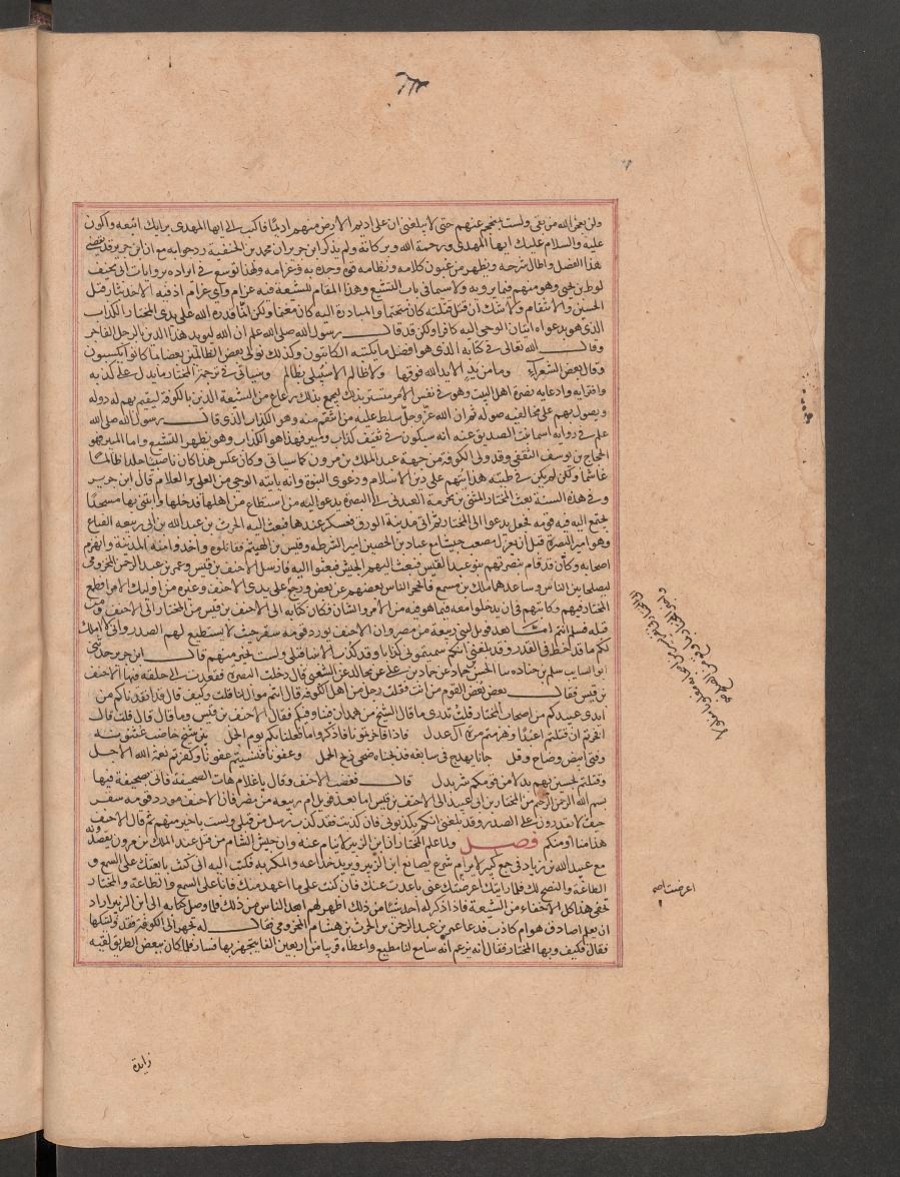 ولن يعني الله من بغى ولست بمنجم عنهم حتى لا يبلغني ان على اديم الارض منهم ارميا فاكتب الي ايها المهدي برايك اتبعه واكون
عليه والسلام عليك ايها المهدي ورحمة الله وبركاته ولم يذكر ابن جرير ان محمد بن الحنفية رد جوابه مع ان ابن جرير قد تقصى
هذا الفصل واطال شرحه ويظهر من غبون كلامه ونظامه قوة وجده به وغرامه ولهذا توسع في ايراده بروايات ابي مخنف
لوط بن يحيى وهو متهم فيما يرويه ولا سيما في باب التشيع وهذا المقام للشيعة فيه غرام واي غرام اذ فيه الاخذ بثار قتل
الحسين والانتقام ولا شك ان قتل قتلته كان متحتما والمبادرة اليه كان مغنما ولكن انما قدره الله على يدي المختار الكذاب
الذي هو بدعواه اتيان الوحي اليه كافرا ولكن قد قال رسول الله صلى الله علم ان الله ليويد هذا الدين بالرجل الفاجر
وقال الله تعالى في كتابه الذي هو افضل ما يكتبه الكاتبون وكذلك نولي بعض الظالمين بعضا بما كانوا يكسبون
وقال بعض الشعراء وما من يد الا يد الله فوقها ولا ظالم الا سيبلى بظالم وسياتي في ترجمة المختار ما يدل على كذبه
وافترايه وادعايه نصرة اهل البيت وهو في نفس الامر مستتر بذلك ليجمع بذلك رعاع من الشيعة الذين بالكوفة ليقيم بهم له دولة
ويصول بهم على مخالفيه صولة ثم ان الله عز وجل سلط عليه من انتقم منه وهو الكذاب الذي قال رسول الله صلى الله
علم في رواية اسما بنت الصديق عنه انه سيكون في ثقيف كذاب ومبير فهذا هو الكذاب وهو يظهر التشيع واما المبير فهو
الحجاج بن يوسف الثقفي وقد ولى الكوفة من جهة عبد الملك بن مرون كما سياتي وكان عكس هذا كان ناصبيا جلدا ظالما
غاشما ولكن لم يكن في طبقة هذا يتهم على دين الاسلام ودعوى النبوة وانه ياتيه الوحي من العلي العلام قال ابن جرير
وفي هذه السنة بعث المختار المثنى بن مخرمة العبدي الى البصرة يدعو اليه من استطاع من اهلها فدخلها وابتنى بها مسجدا
يجتمع اليه فيه قومه فجعل يدعوا الى المختار ثم اتى مدينة الورق فعسكر عندها فبعث اليه الحرث بن عبد الله بن ابي ربيعة القباع
وهو امير البصرة قبل ان يعزل بمصعب جيشا مع عباد بن الحصين امير الشرطه وقيس بن الهيثم فقاتلوه واخذوا منه المدينة وانهزم
اصحابه وكان قد قام بنصرتهم بنو عبد القيس فبعث اليهم الجيش فبعثوا اليه فارسل الاحنف بن قيس وعمر بن عبد الرحمن المخزومي
ليصلحا بين الناس وساعدهما ملك بن مسمع فانحجز الناس بعضهم عن بعض ورجع
المختار فيهم وكاتبهم في ان يدخلوا معه فيما هو فيه من الامر والشان فكان كتابه الى الاحنف بن قيس من المختار الى الاحنف
قبله فسلم انتم اما بعد فويل لبني ربيعة من مضر وان الاحنف يورد قومه سقر حيث لا يستطيع لهم الصدر واني لا املك
لكم ما قد خط في القدر وقد بلغني انكم سميتموني كذابا وقد كذب الانبيا قبلي ولست بخير منهم قال ابن جرير حدثني
ابو السايب سلم بن جناده سا الحسن بن حماد عن حماد بن على عن مجالد عن الشعبي قال دخلت البصرة فقعدت الى حلقة فيها الاحنف
بن قيس فقال بعض القوم من انت فقلت رجل من اهل الكوفة قال انتم موال لنا قلت وكيف قال قد انقذناكم من
ايدي عبيدكم من اصحاب المختار قلت تدري ما قال الشيخ من همدان فينا وفيكم فقال الاحنف بن قيس وما قال قال قلت قال
افخرتم ان قتلتم اعبدا وهزمتم مرة ال عدل فاذا فاخرتمونا فاذكروا ما فعلنا بكم يوم الجمل بين شيخ خاضب عثنونه
وفتى ابيض وضاح رفل جانا يهدج في سابغة فذبحناه ضحى ذبح الحمل وعفونا فنسيتم عفونا وكفرتم نعمة الله الاجل
وقتلتم بحسين بهم بدلا من قومكم شر بدل قال فغضب الاحنف وقال يا غلام هات الصحيفة فاتى بصحيفة فيها
بسم الله الرحمن الرحيم من المختار بن ابي عبيد الى الاحنف بن قيس اما بعد فويل ام ربيعة من مضر فان الاحنف مورد قومه سقر
حيث لا يقدرون على الصدر وقد بلغني انكم تكذبوني فان كذبت فقد كذب رسل من قبلي ولست باخير منهم ثم قال الاحنف
هذا منا او منكم فصل ولما علم المختار ان ابن الزبير لا ينام عنه وان جيش الشام من قبل عبد الملك بن مرون يقصده
مع عبيد الله بن زياد في جمع كثير لا يرام شرع يصانع ابن الزبير ويريد خداعه والمكر به فكتب اليه اني كنت بايعتك على السمع و
الطاعة والنصح لك فلما رايتك اعرضت عني باعدت عنك فان كنت على ما اعهد منك فانا على السمع والطاعة والمختار
تخفي هذا كل الاخفاء من الشيعة فاذا ذكر له احد شيا من ذلك اظهر لهم انه ابعد الناس من ذلك فلما وصل كتابه الى ابن الزبير اراد
ان يعلم اصادق هو ام كاذب فدعا عمر بن عبد الرحمن بن الحرث بن هشام المخزومي فقال له تجهز الى الكوفة فقد وليتكها
فقال وكيف وبها المختار فقال انه يزعم انه سامع لنا مطيع واعطاه قريبا من اربعين الفا يتجهز بها فسار فلما كان ببعض الطريق لقيه
زايدة